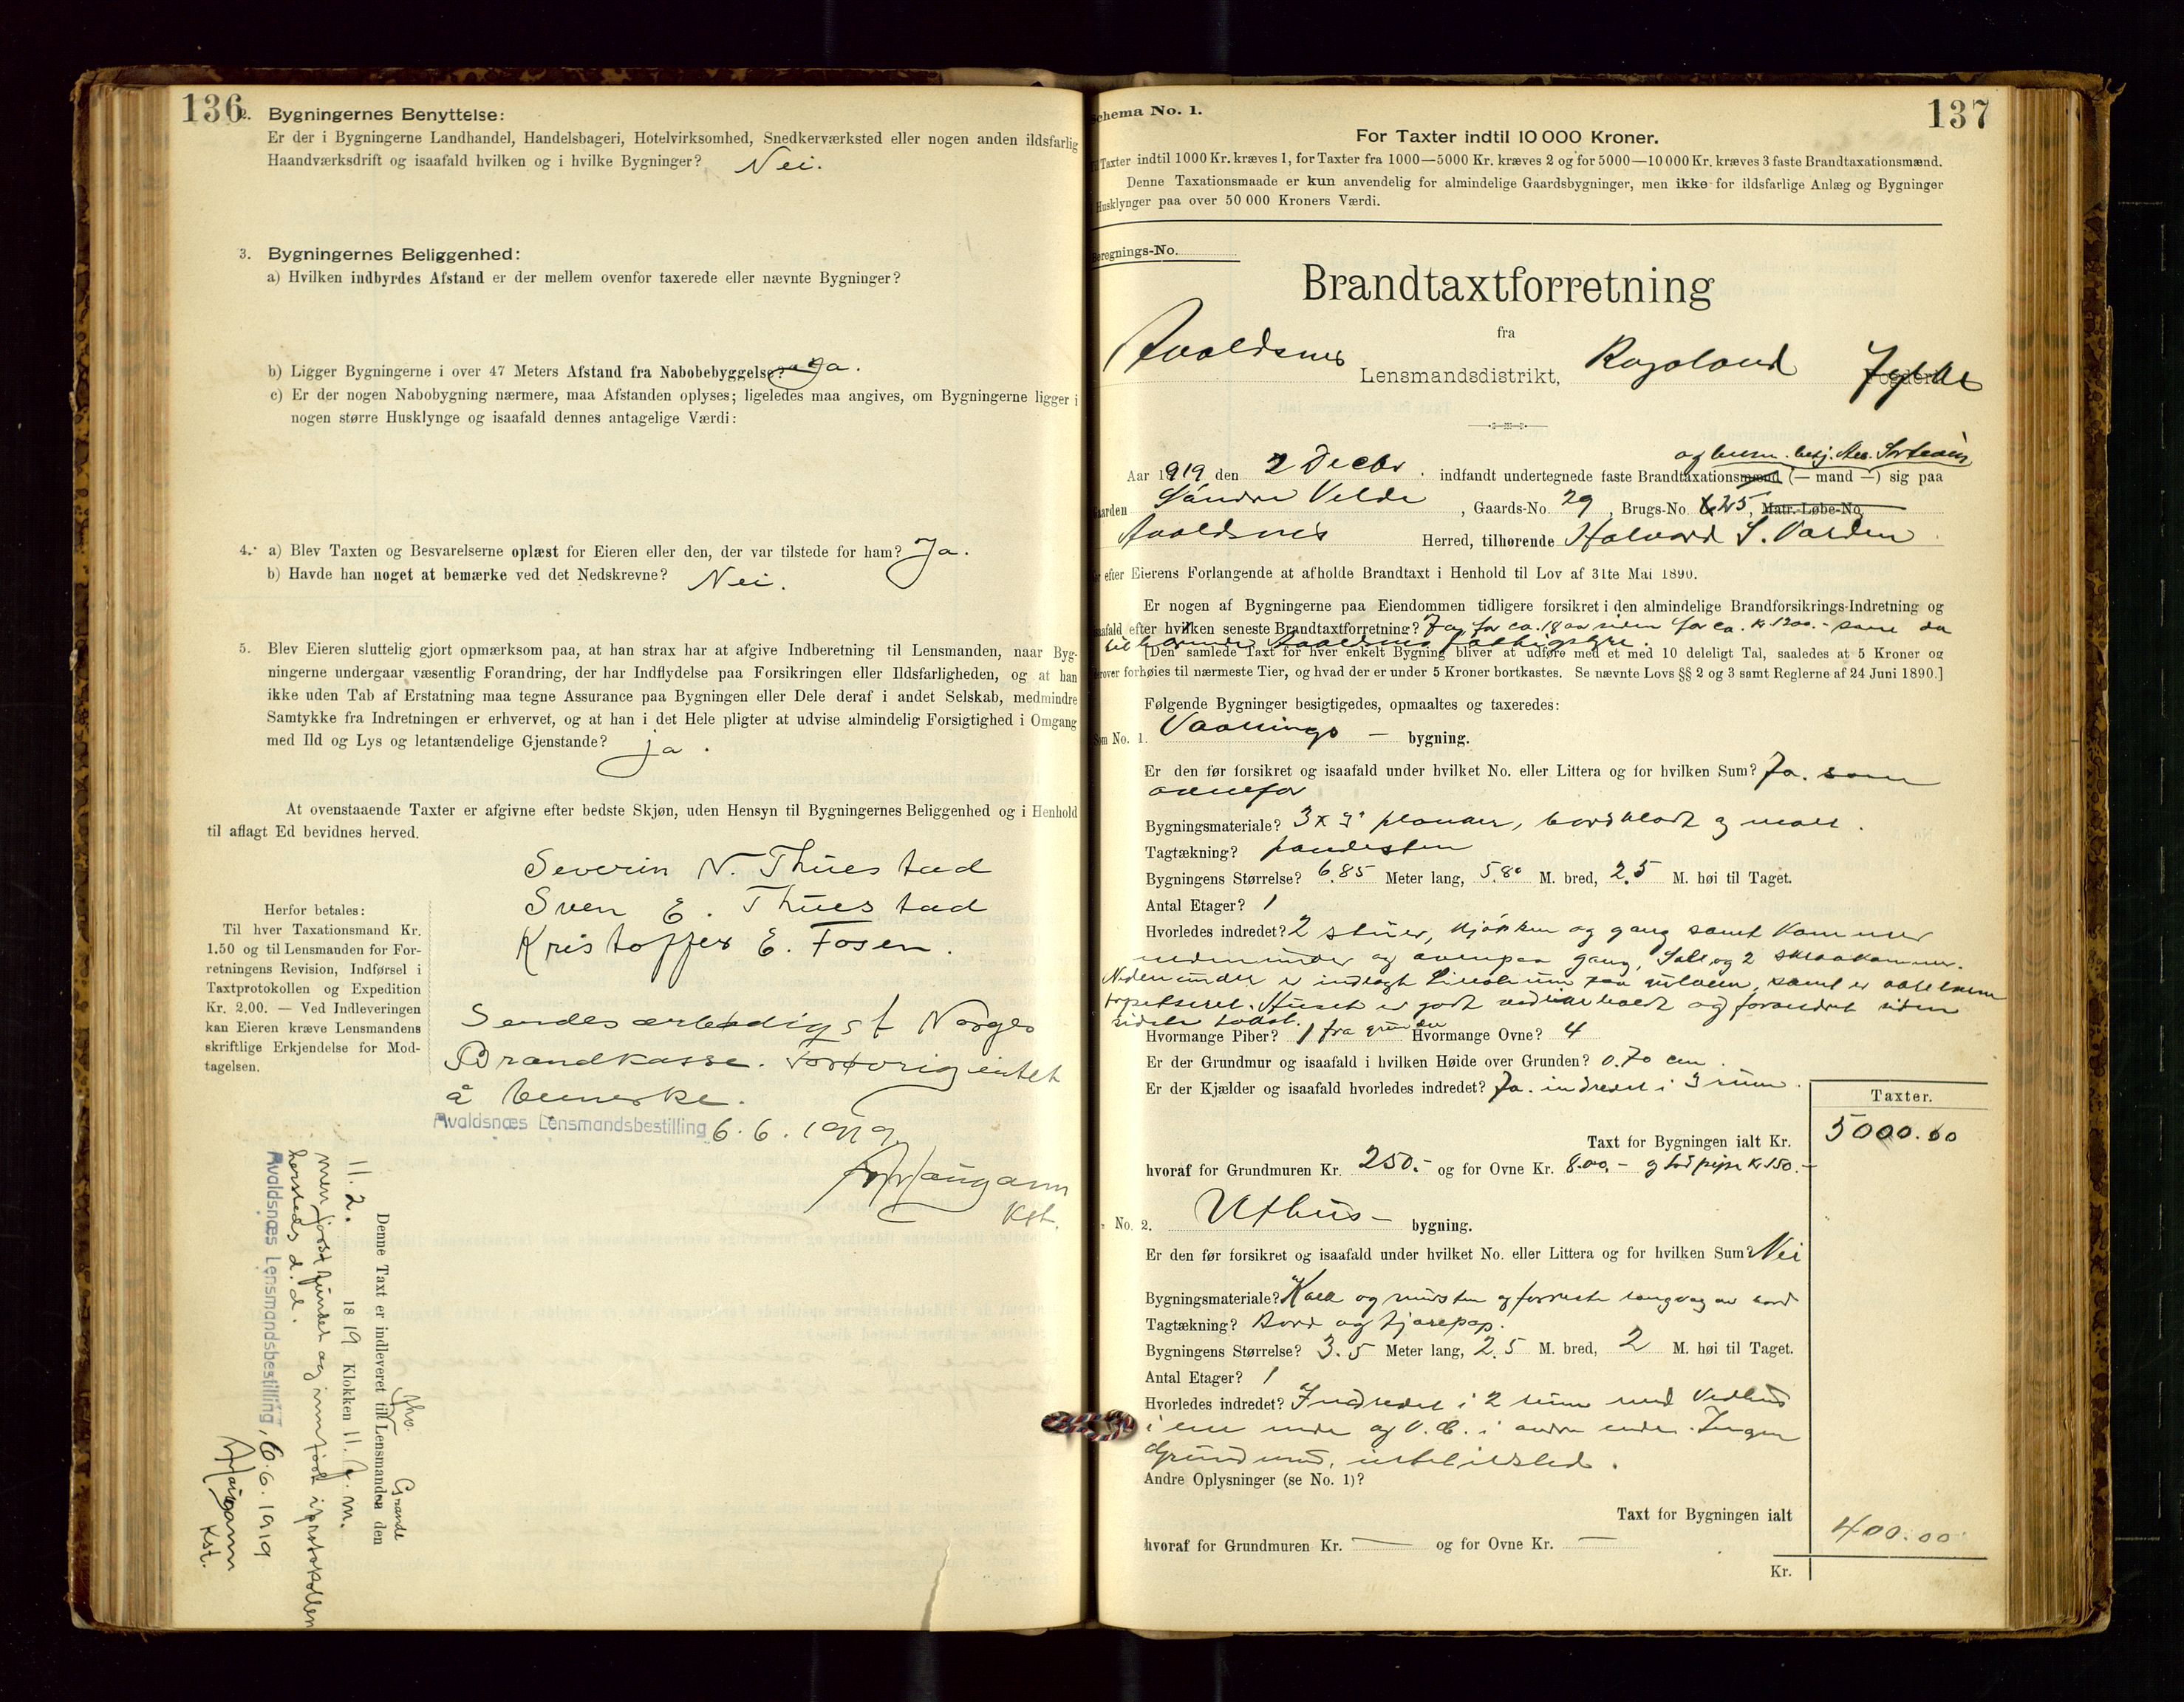 136
2. Bygningernes Benyttelse:
Er der i Bygningerne Landhandel, Handelsbageri, Hotelvirksomhed, Snedkerværksted eller nogen anden ildsfarlig
Haandværksdrift og isaafald hvilken og i hvilke Bygninger? Nei.
3. Bygningernes Beliggenhed:
a) Hvilken indbyrdes Afstand er der mellem ovenfor taxerede eller nævnte Bygninger?
b) Ligger Bygningerne i over 47 Meters Afstand fra Nabobebyggelse? Ja.
c) Er der nogen Nabobygning nærmere, maa Afstanden oplyses; ligeledes maa angives, om Bygningerne ligger i
nogen større Husklynge og isaafald dennes antagelige Værdi:
4. a) Blev Taxten og Besvarelserne oplæst for Eieren eller den, der var tilstede for ham? Ja.
b) Havde han noget at bemærke ved det Nedskrevne? Nei.
5. Blev Eieren sluttelig gjort opmærksom paa, at han strax har at afgive Indberetning til Lensmanden, naar Byg-
ningerne undergaar væsentlig Forandring, der har Indflydelse paa Forsikringen eller Ildsfarligheden, og at han
ikke uden Tab af Erstatning maa tegne Assurance paa Bygningen eller Dele deraf i andet Selskab, medmindre
Samtykke fra Indretningen er erhvervet, og at han i det Hele pligter at udvise almindelig Forsigtighed i Omgang
med Ild og Lys og letantændelige Gjenstande? ja.
At ovenstaaende Taxter er afgivne efter bedste Skjøn, uden Hensyn til Bygningernes Beliggenhed og i Henhold
til aflagt Ed bevidnes herved.
Severin N. Thuestad
Sven E. Thuestad
Kristoffer E. Fosen.
Herfor betales:
Til hver Taxationsmand Kr.
1.50 og til Lensmanden for For-
retningens Revision, Indførsel i
Taxtprotokollen og Expedition
Kr. 2.00. — Ved Indleveringen
kan Eieren kræve Lensmandens
skriftlige Erkjendelse for Mod-
tagelsen.
Sendes ærbødigst Norges
Brandkasse. Forøvrig intet
å bemerke.
Avaldsnæs Lensmandsbestilling 6.6.1919
Haugann
Kst.
Grande
Denne Taxt er indleveret til Lensmanden den
11.2. 1819 Klokken 11 f.m.
men først fundet og innført i protokollen
hersteds d.d.
Avaldsnæs Lensmandsbestilling, 6.6.1919
Haugann
Kst.
137
Schema No. 1.
For Taxter indtil 10 000 Kroner.
Taxter indtil 1000 Kr. kræves 1, for Taxter fra 1000—5000 Kr. kræves 2 og for 5000—10 000 Kr. kræves 3 faste Brandtaxationsmænd.
Denne Taxationsmaade er kun anvendelig for almindelige Gaardsbygninger, men ikke for ildsfarlige Anlæg og Bygninger
Husklynger paa over 50 000 Kroners Værdi.
Beregnings-No.
Brandtaxtforretning
fra
Avaldsnes Lensmandsdistrikt, Rogaland Fylke
Aar 1919 den 2 Decbr. indfandt undertegnede faste Brandtaxationsmænd (— mand —) sig paa
Gaarden Søndre Velde, Gaards-No. 29, Brugs-No. 25, Matr.-Løbe-No.
Avaldsnes Herred, tilhørende Halvard S. Varden
efter Eierens Forlangende at afholde Brandtaxt i Henhold til Lov af 31te Mai 1890.
Er nogen af Bygningerne paa Eiendommen tidligere forsikret i den almindelige Brandforsikrings-Indretning og
isaafald efter hvilken seneste Brandtaxtforretning? Ja, for ca. 18 aar siden for ca. kr 1200.- som da
tilhørende Avaldsnes fattigstyre.
[Den samlede Taxt for hver enkelt Bygning bliver at udføre med et med 10 deleligt Tal, saaledes at 5 Kroner og
derover forhøies til nærmeste Tier, og hvad der er under 5 Kroner bortkastes. Se nævnte Lovs §§ 2 og 3 samt Reglerne af 24 Juni 1890.]
Følgende Bygninger besigtigedes, opmaaltes og taxeredes:
Som No. 1. Vaanings — bygning.
Er den før forsikret og isaafald under hvilket No. eller Littera og for hvilken Sum? Ja. som
ovenfor
Bygningsmateriale? 3 x 9" planker, bordklædt og malt.
Tagtækning? pandesten
Bygningens Størrelse? 6.85 Meter lang, 5.80 M. bred, 2.5 M. høi til Taget.
Antal Etager? 1
Hvorledes indredet? 2 stuer, kjøkken og gang samt kammer
nedenunder og ovenpaa gang, Sal og 2 skraakammer.
Nedenunder er indlagt Linoleum paa gulvene, samt er værelserne
tapetseret. Huset er godt vedlikeholdt og forandret siden
sidste takst.
Hvormange Piber? 1 fra grunden Hvormange Ovne? 4
Er der Grundmur og isaafald i hvilken Høide over Grunden? 0.70 cm.
Er der Kjælder og isaafald hvorledes indredet? Ja. indredet i 3 rum.
Taxter.
Taxt for Bygningen ialt Kr. 5000.00
hvoraf for Grundmuren Kr. 250.- og for Ovne Kr. 800.- og for pipe Kr 150.-
No. 2. Uthus- bygning.
Er den før forsikret og isaafald under hvilket No. eller Littera og for hvilken Sum? Nei
Bygningsmateriale? Kalk og mursten og forreste langvæg av bord
Tagtækning? Bord og tjærepap.
Bygningens Størrelse? 3.5 Meter lang, 2.5 M. bred, 2 M. høi til Taget.
Antal Etager? 1
Hvorledes indredet? Indredet i 2 rum med Vedhus
i ene ende og V.C. i andre enden. Ingen
Grundmur, intet ildsted.
Andre Oplysninger (se No. 1)?
Taxt for Bygningen ialt 400.00
hvoraf for Grundmuren Kr. — og for Ovne Kr. —
Kr.